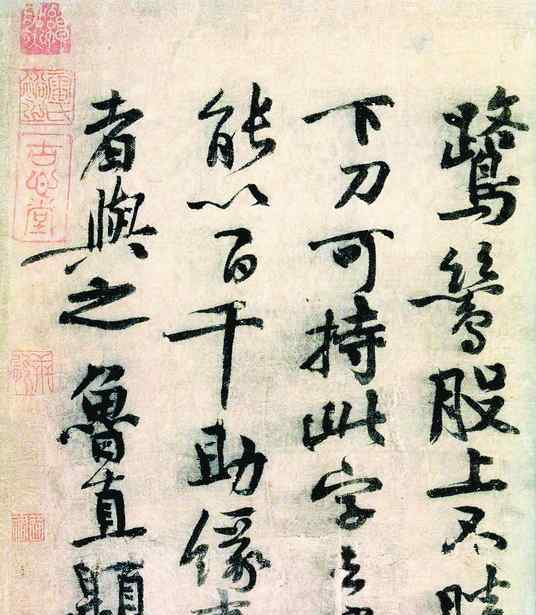 鷺鷥股上不
下刀可持此字
能以百千助緣
者與之 魯直
古心堂